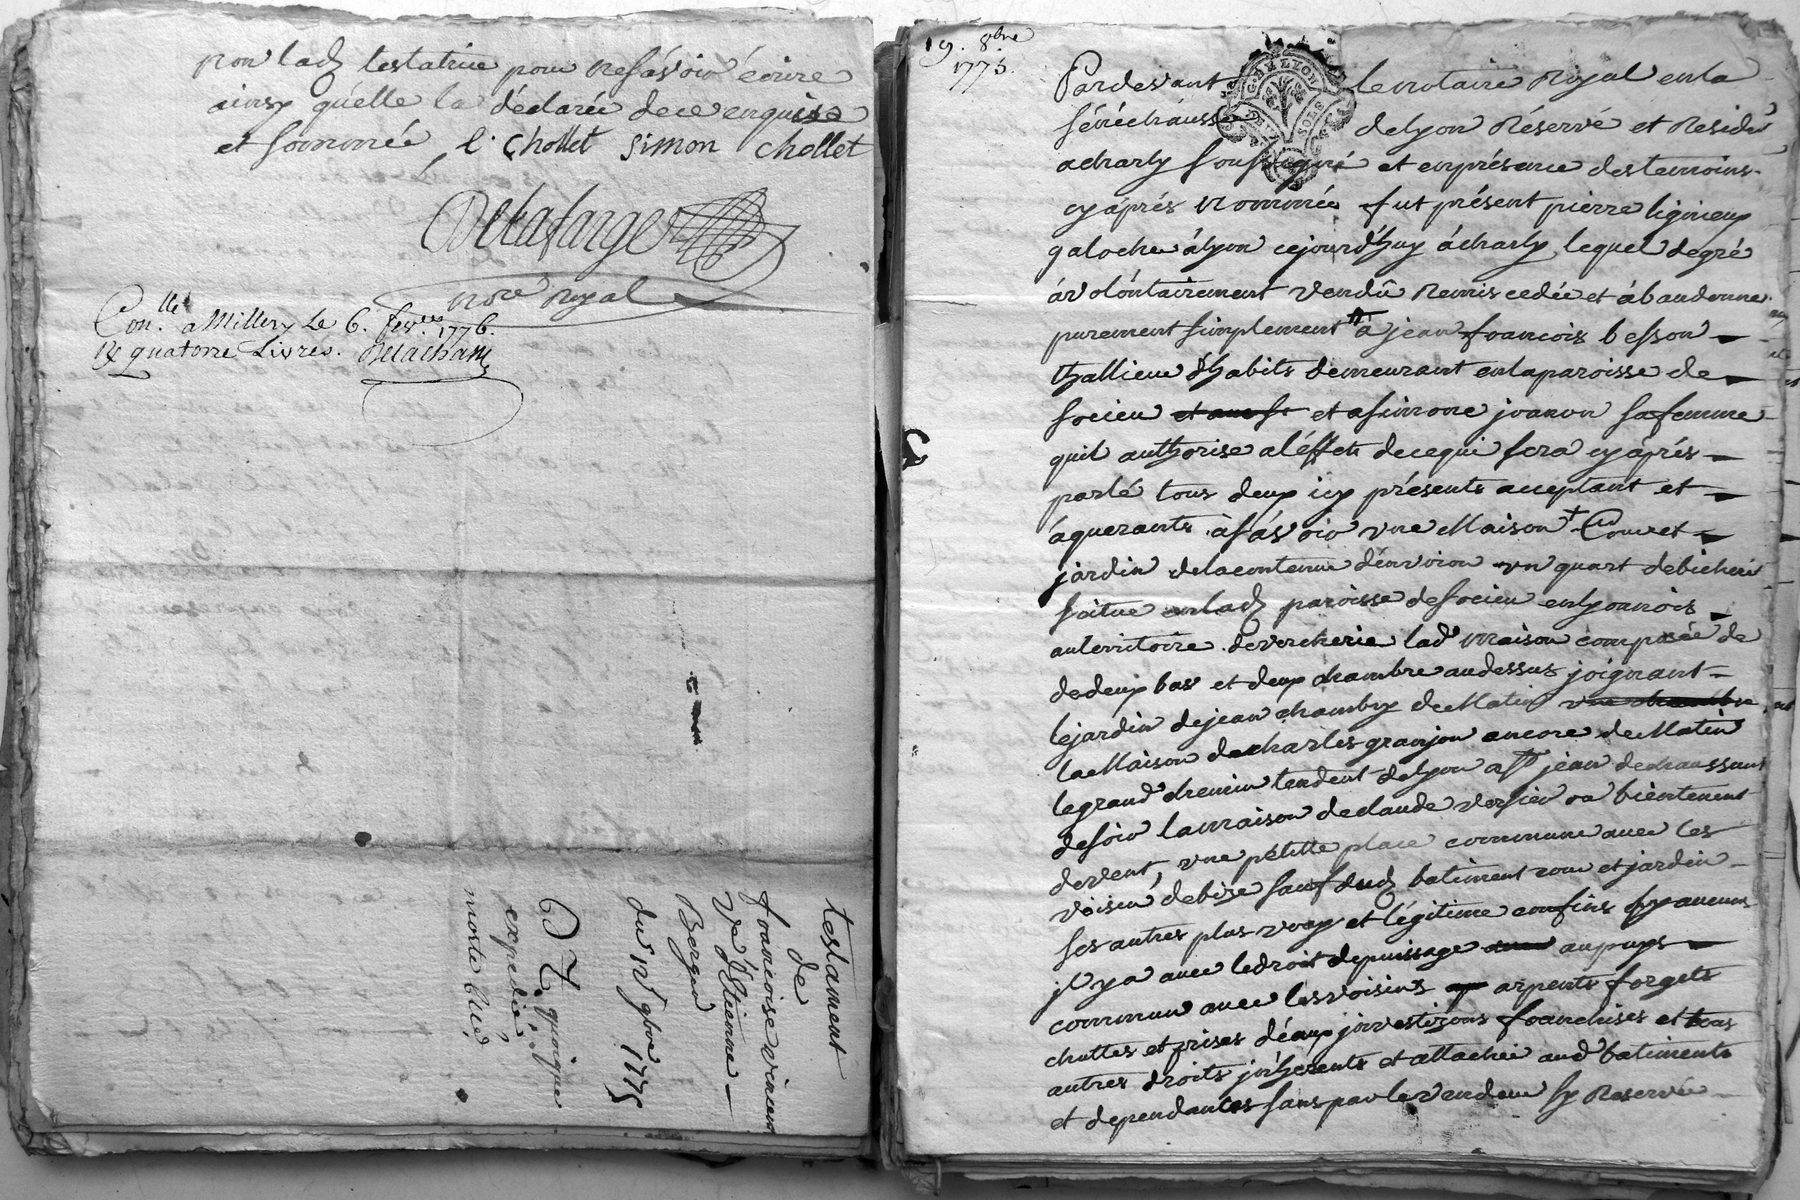 non lad testatrice pour ne sávoir écrire
ainsy qu'elle la déclarée de ce enquise
et sommée l. chollet simon chollet
Delafarge
nore Royal
Con.lle a Millery Le 6. fevr. 1776.
R quatorze Livres. Delacham
testament
de
francoise vincent
Ve d'Etienne
Berger
du 12 9bre 1775
D T. quoique
expedié
morte
19. 8bre
1775.
Pardevant le notaire Royal en la
sénéchaussée de lyon Réservé et Residant
a charly soussigné et en présence des temoins
cy áprés nommés fut présent pierre lignieux
galoche á lyon ce jourd'huy á charly lequel de gré
á volontairement vendû Remis cedée et ábandonne
purement simplement à jean francois besson
thallieur d'habits demeurant en la paroisse de
socieu et a simone joanon sa femme
quil authorise a léffets de ce qui sera cy áprés
parlé tous deux icy présents acceptant et
áquerants à sávoir une Maison Cour et
jardin de la contenue d'environ un quart de bicherée
scitue en lad paroisse de socieu en lyonnois
au territoire de vercherie lad maison composée de
de deux bas et deux chambre au dessus joignant
le jardin de jean chambry de Matin une chambre
la Maison de charles granjon ancore de Matin
le grand chemin tendent de lyon a st jean de chaussant
de soir la maison de claude versier ou bientenent
de vent, une petitte place commune avec les
voisin de bize sauf dud batiment cour et jardin
ses autres plus vray et légitime confins sy aucuns
jl y a avec le droit de puissage au puys
commun avec les voisins arpents forgets
chuttes et prises déaux jnvestizons franchises et tous
autres droits jnhérents et attachée aud batiments
et dependances sans par le vendeur sy Reservé